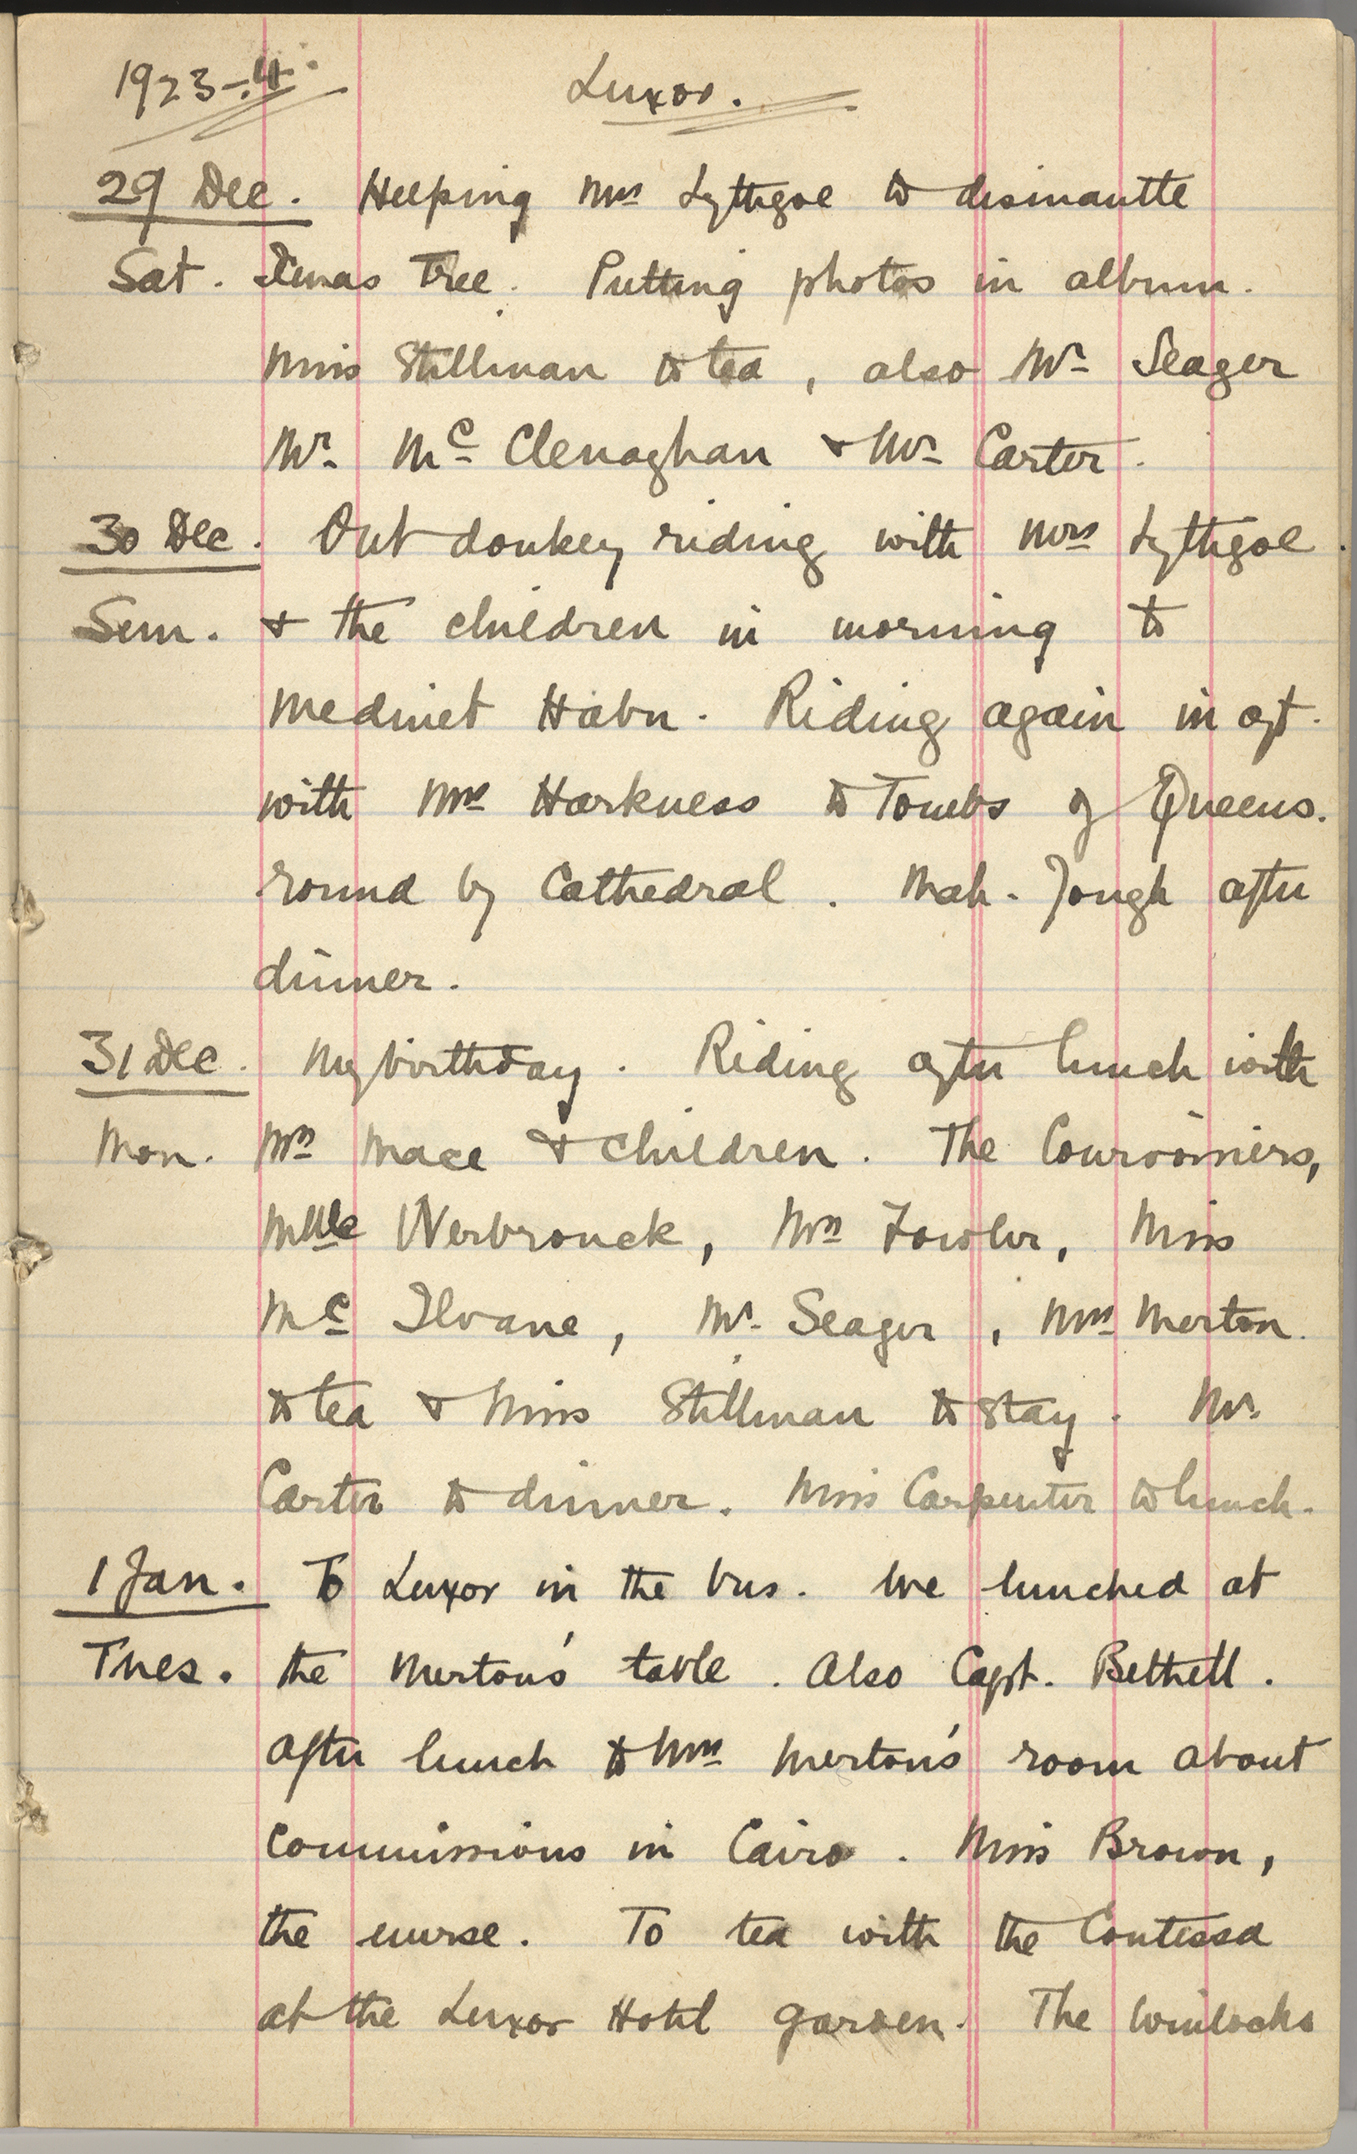 1923-4. Luxor.
29 Dec. Helping Mrs Lythgoe to dismantle
Sat. Xmas Tree. Putting photos in album.
Miss Stillman to tea, also Mr Seager
Mr. Mc Clenaghan & Mr Carter.
30 Dec. Out donkey riding with Mrs Lythgoe.
Sun. & the children in morning to
Medinet Habu. Riding again in aft.
with Mrs Harkness to Tombs of Queens.
round by Cathedral. Mah-Jongh after
dinner.
31 Dec. My birthday. Riding after lunch with
Mon. Mrs Mace & children. The
Mlle Werbrouck, Mrs Fowler, Miss
Mc Ilvane, Mr. Seager, Mrs Merton.
to tea & Miss Stillman to stay. Mr.
Carter to dinner. Miss Carpenter to lunch.
1 Jan. To Luxor in the bus. We lunched at
Tues. the Merton's table. Also Capt. Bethell.
After lunch to Mrs Merton's room about
commissions in Cairo. Miss Brown,
the nurse. To tea with the Contessa
at the Luxor Hotel garden. The Winlocks